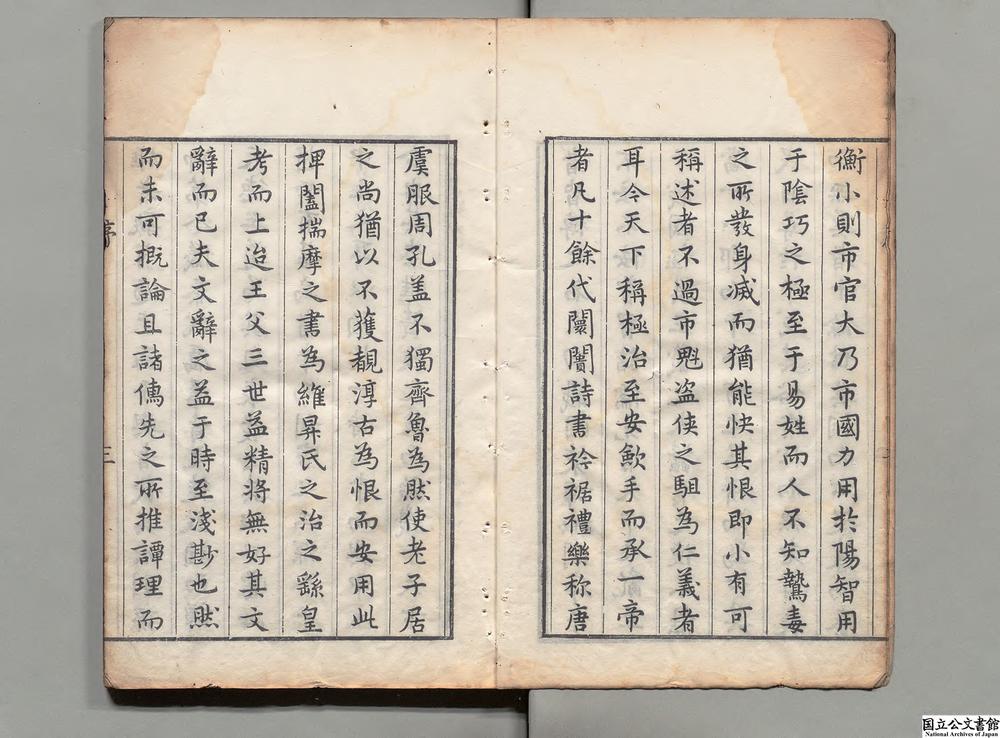 衡小則市官大乃市國力用扵陽智用
于陰巧之極至于易姓而人不知鷙毒
之所發身滅而猶能快其恨即小有可
稱述者不過市魁盗俠之駔為仁義者
耳今天下稱極治至安歛手而承一帝
者凡十餘代闤闠詩書衿裾禮樂称唐
虞服周孔盖不獨齊魯為然使老子居
之尚猶以不獲覩淳古為恨而安用此
捭闔揣摩之書為維昇氏之治之繇皇
考而上迨王父三世益精将無好其文
辭而已夫文辭之益于時至淺尠也然
而未可概論且諸儁先之所推譚理而
序
三
国立公文書館
National Archives of Japan